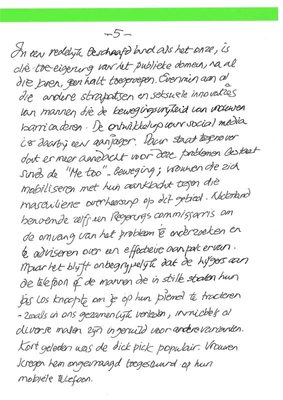 - 5 -
In een redelijk beschaafd land als het onze, is
die toe-eigening van het publieke domein, na al
die jaren, geen halt toegeroepen. Evenmin aan al
die andere strapatsen en seksuele
van mannen die de bewegingsvrijheid van vrouwen
barricaderen. De ontwikkeling van social media
is daarbij een aanjager. Daar staat tegenover
dat er meer aandacht voor deze problemen bestaat
sinds de "Me too"-beweging; vrouwen die zich
mobiliseren met hun aanklacht tegen die
masculiene overheersing op dit gebied. Nederland
benoemde zelfs een Regeringscommissaris om
de omvang van het probleem te onderzoeken en
te adviseren over een effectieve aanpak ervan.
Maar het blijft onbegrijpelijk dat de hijgers aan
de telefoon of de mannen die in stille straten hun
jas los knoopte om je op hun piemel te trakteren
- zoals in ons gezamenlijk verleden, inmiddels al
diverse malen zijn ingeruild voor andere varianten.
Kort geleden was de dick pick populair. Vrouwen
kregen hem ongevraagd toegestuurd op hun
mobiele telefoon.